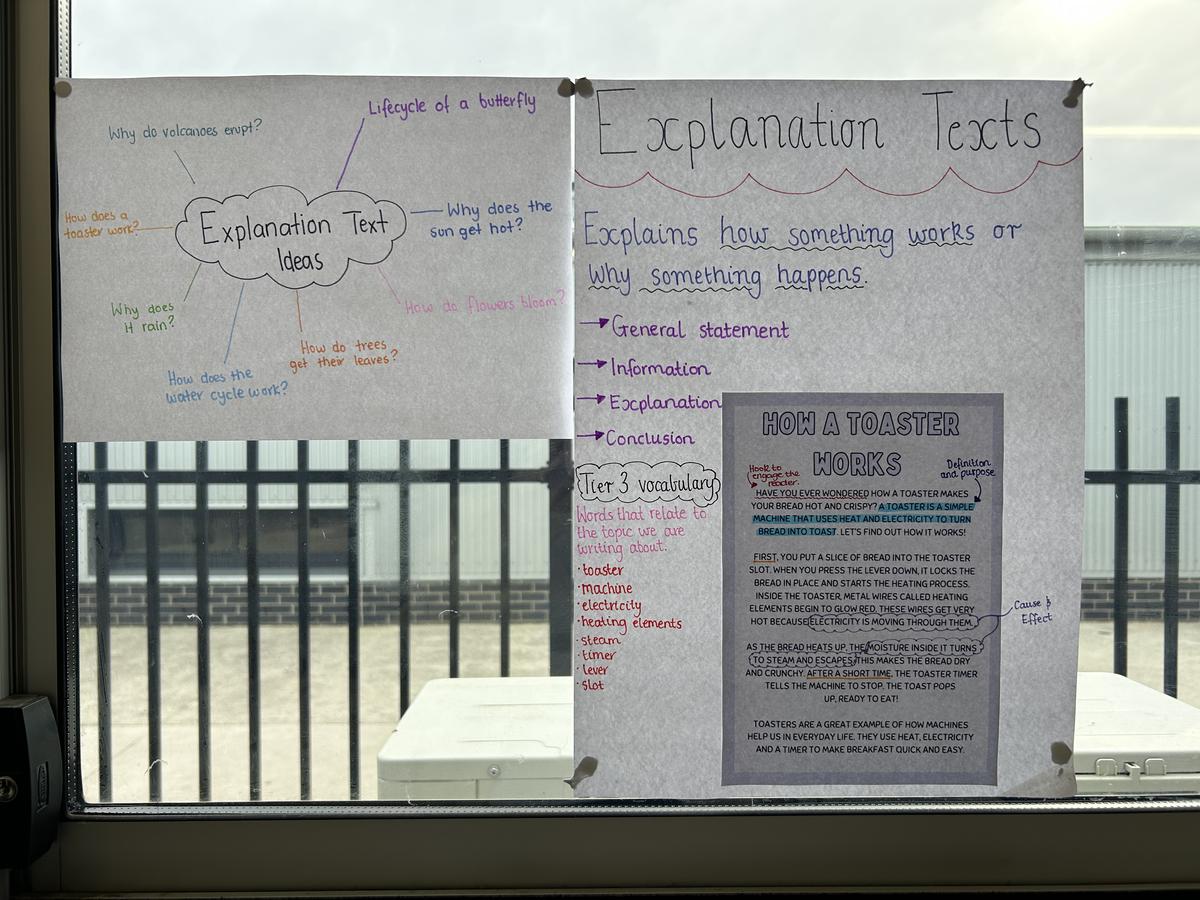 Lifecycle of a butterfly
Why do volcanoes erupt?
Why does the
sun get hot?
How does a
toaster work?
Explanation Text
Ideas
How do flowers bloom?
Why does
it rain?
How do trees
get their leaves?
How does the
water cycle work?
Explanation Texts
Explains how something works or
why something happens.
→ General statement
→ Information
→ Explanation
→ Conclusion
Tier 3 vocabulary
Words that relate to
the topic we are
writing about.
· toaster
· machine
· electricity
· heating elements
· steam
· timer
· lever
· slot
HOW A TOASTER
WORKS
Hook to
engage the
reader.
Definition
and purpose
HAVE YOU EVER WONDERED HOW A TOASTER MAKES
YOUR BREAD HOT AND CRISPY? A TOASTER IS A SIMPLE
MACHINE THAT USES HEAT AND ELECTRICITY TO TURN
BREAD INTO TOAST. LET'S FIND OUT HOW IT WORKS!
FIRST, YOU PUT A SLICE OF BREAD INTO THE TOASTER
SLOT. WHEN YOU PRESS THE LEVER DOWN, IT LOCKS THE
BREAD IN PLACE AND STARTS THE HEATING PROCESS.
INSIDE THE TOASTER, METAL WIRES CALLED HEATING
ELEMENTS BEGIN TO GLOW RED. THESE WIRES GET VERY
HOT BECAUSE ELECTRICITY IS MOVING THROUGH THEM.
Cause &
Effect
AS THE BREAD HEATS UP, THE MOISTURE INSIDE IT TURNS
TO STEAM AND ESCAPES. THIS MAKES THE BREAD DRY
AND CRUNCHY. AFTER A SHORT TIME, THE TOASTER TIMER
TELLS THE MACHINE TO STOP. THE TOAST POPS
UP, READY TO EAT!
TOASTERS ARE A GREAT EXAMPLE OF HOW MACHINES
HELP US IN EVERYDAY LIFE. THEY USE HEAT, ELECTRICITY
AND A TIMER TO MAKE BREAKFAST QUICK AND EASY.